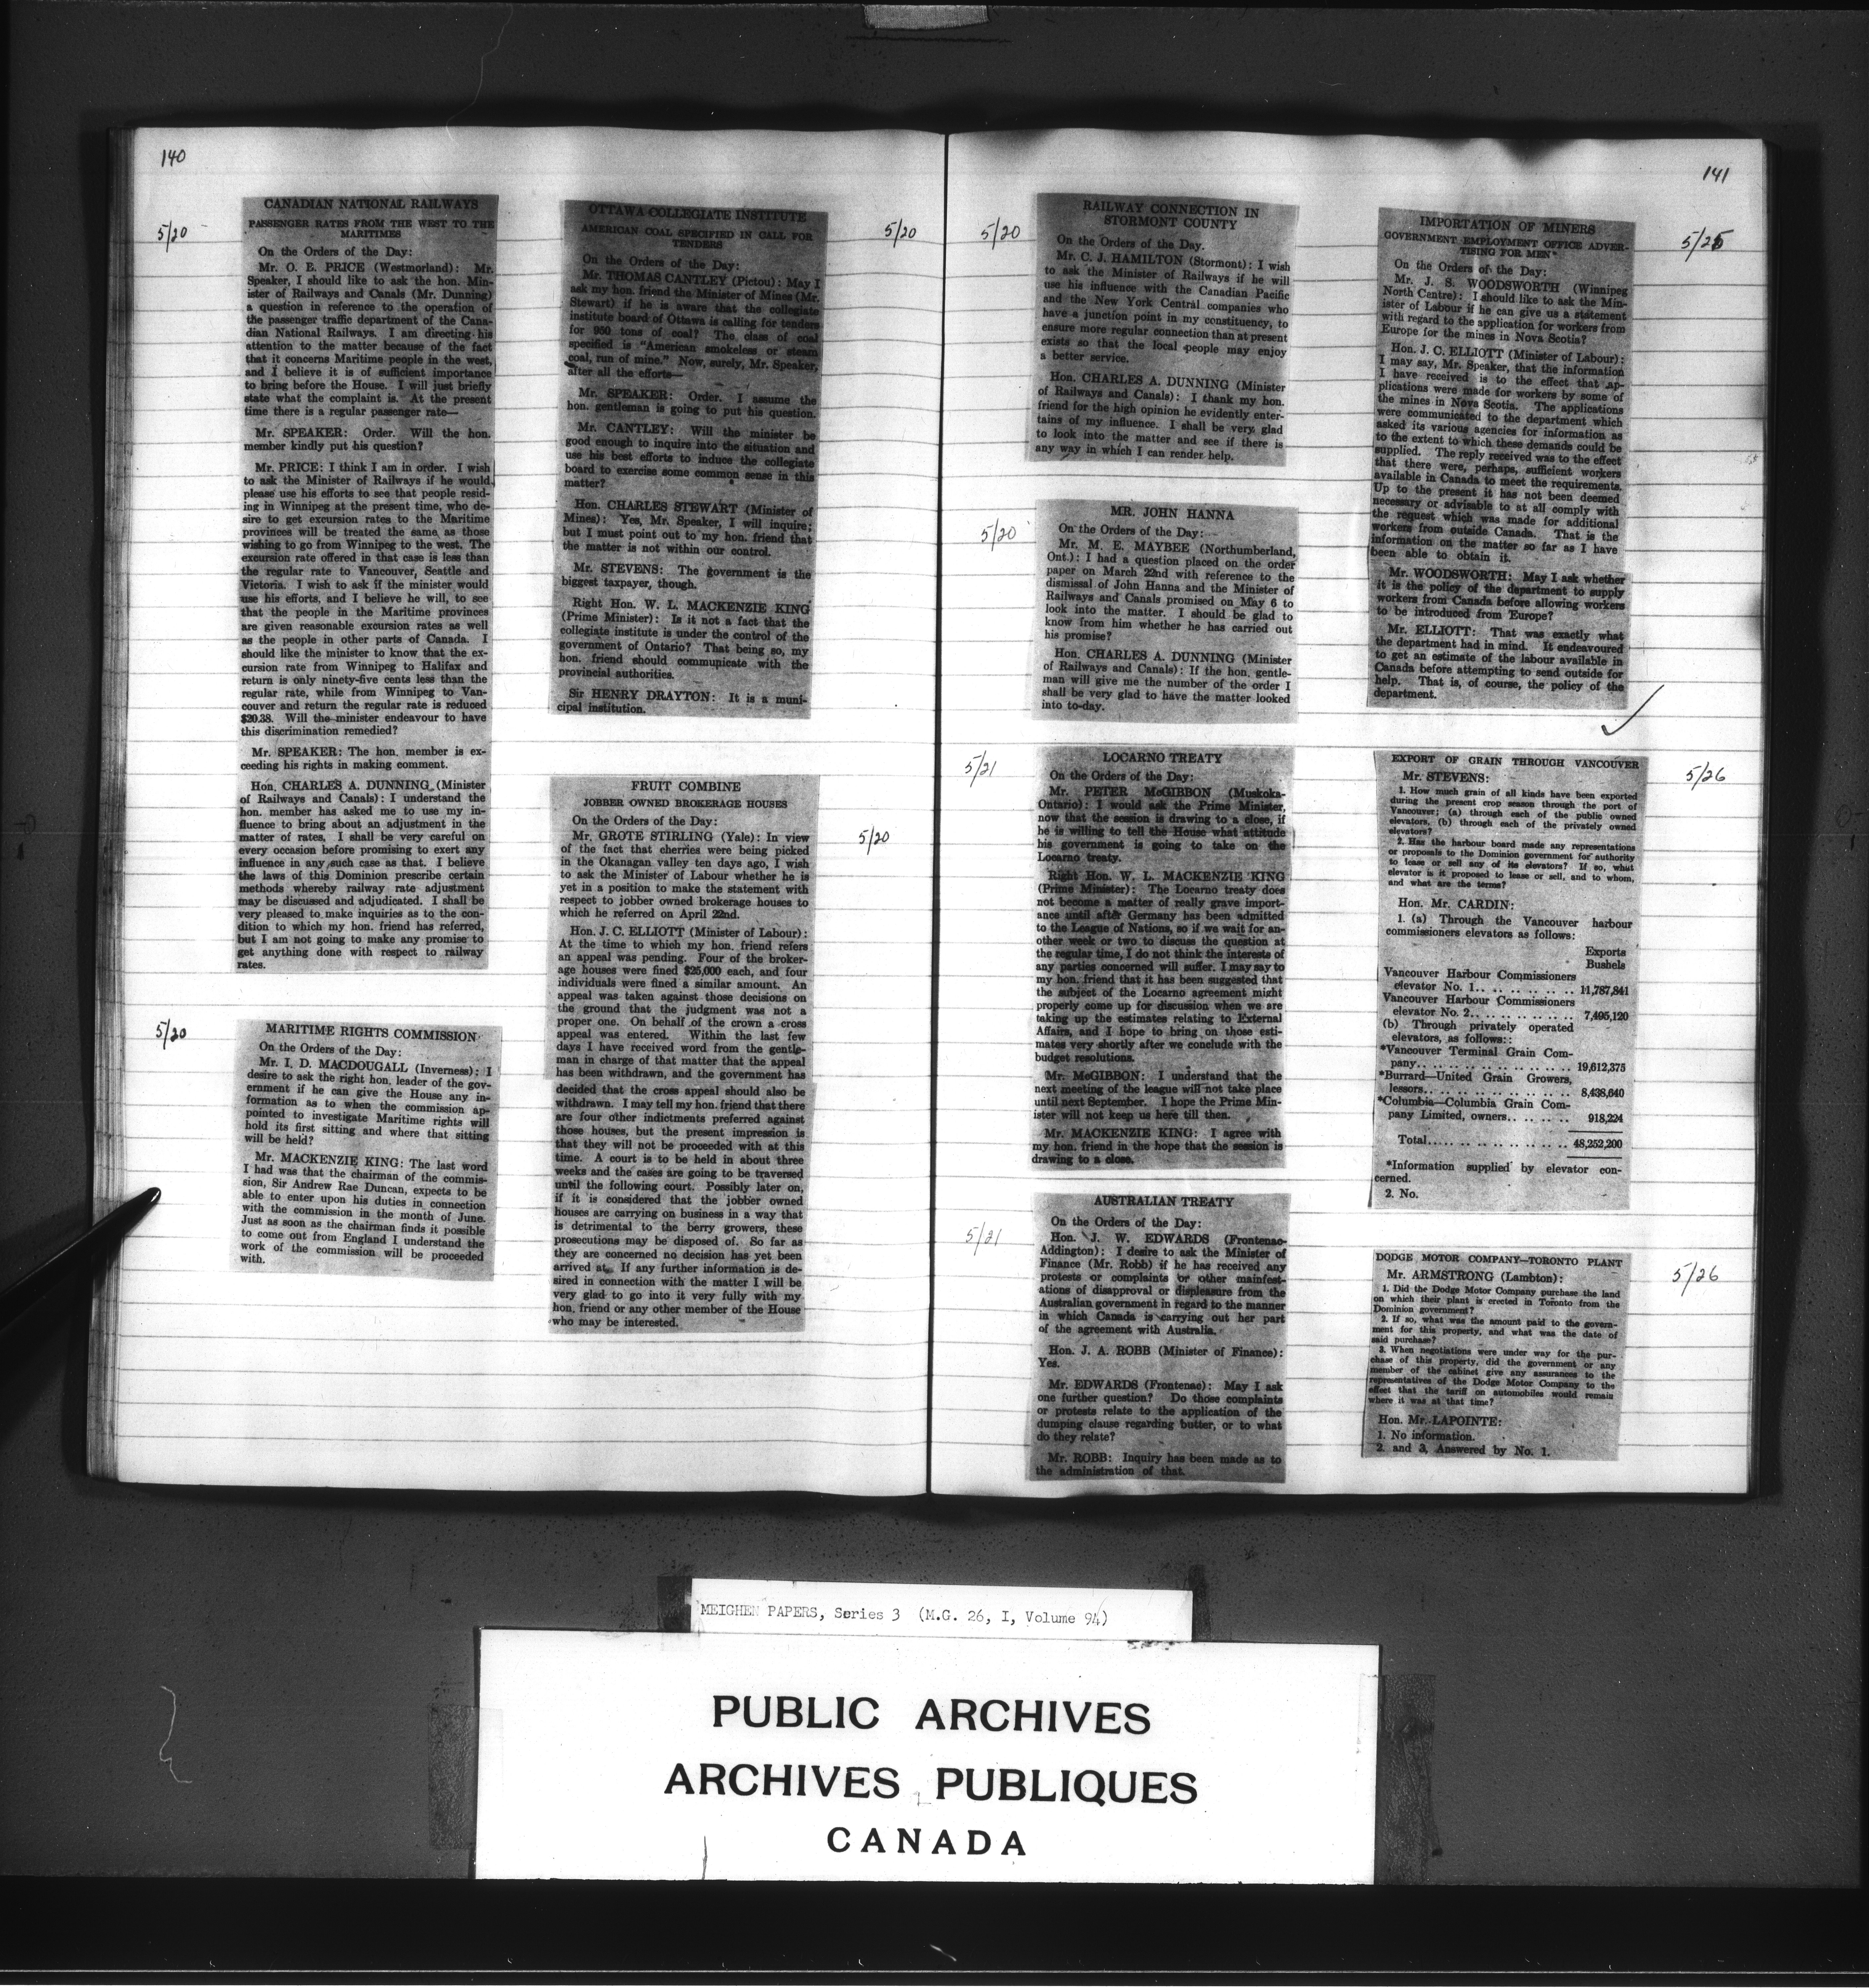 140
5/20
CANADIAN NATIONAL RAILWAYS
PASSENGER RATES FROM THE WEST TO THE
MARITIMES
On the Orders of the Day:
Mr. O. E. PRICE (Westmorland): Mr.
Speaker, I should like to ask the hon. Min-
ister of Railways and Canals (Mr. Dunning)
a question in reference to the operation of
the passenger traffic department of the Cana-
dian National Railways. I am directing his
attention to the matter because of the fact
that it concerns Maritime people in the west,
and I believe it is of sufficient importance
to bring before the House. I will just briefly
state what the complaint is. At the present
time there is a regular passenger rate—
Mr. SPEAKER: Order. Will the hon.
member kindly put his question?
Mr. PRICE: I think I am in order. I wish
to ask the Minister of Railways if he would
please use his efforts to see that people resid-
ing in Winnipeg at the present time, who de-
sire to get excursion rates to the Maritime
provinces will be treated the same as those
wishing to go from Winnipeg to the west. The
excursion rate offered in that case is less than
the regular rate to Vancouver, Seattle and
Victoria. I wish to ask if the minister would
use his efforts, and I believe he will, to see
that the people in the Maritime provinces
are given reasonable excursion rates as well
as the people in other parts of Canada. I
should like the minister to know that the ex-
cursion rate from Winnipeg to Halifax and
return is only ninety-five cents less than the
regular rate, while from Winnipeg to Van-
couver and return the regular rate is reduced
$20.38. Will the minister endeavour to have
this discrimination remedied?
Mr. SPEAKER: The hon. member is ex-
ceeding his rights in making comment.
Hon. CHARLES A. DUNNING (Minister
of Railways and Canals): I understand the
hon. member has asked me to use my in-
fluence to bring about an adjustment in the
matter of rates. I shall be very careful on
every occasion before promising to exert any
influence in any such case as that. I believe
the laws of this Dominion prescribe certain
methods whereby railway rate adjustment
may be discussed and adjudicated. I shall be
very pleased to make inquiries as to the con-
dition to which my hon. friend has referred,
but I am not going to make any promise to
get anything done with respect to railway
rates.
5/20
MARITIME RIGHTS COMMISSION
On the Orders of the Day:
Mr. I. D. MACDOUGALL (Inverness): I
desire to ask the right hon. leader of the gov-
ernment if he can give the House any in-
formation as to when the commission ap-
pointed to investigate Maritime rights will
hold its first sitting and where that sitting
will be held?
Mr. MACKENZIE KING: The last word
I had was that the chairman of the commis-
sion, Sir Andrew Rae Duncan, expects to be
able to enter upon his duties in connection
with the commission in the month of June.
Just as soon as the chairman finds it possible
to come out from England I understand the
work of the commission will be proceeded
with.
5/20
OTTAWA COLLEGIATE INSTITUTE
AMERICAN COAL SPECIFIED IN CALL FOR
TENDERS
On the Orders of the Day:
Mr. THOMAS CANTLEY (Pictou): May I
ask my hon. friend the Minister of Mines (Mr.
Stewart) if he is aware that the collegiate
institute board of Ottawa is calling for tenders
for 950 tons of coal? The class of coal
specified is "American smokeless or steam
coal, run of mine." Now, surely, Mr. Speaker,
after all the efforts—
Mr. SPEAKER: Order. I assume the
hon. gentleman is going to put his question.
Mr. CANTLEY: Will the minister be
good enough to inquire into the situation and
use his best efforts to induce the collegiate
board to exercise some common sense in this
matter?
Hon. CHARLES STEWART (Minister of
Mines): Yes, Mr. Speaker, I will inquire;
but I must point out to my hon. friend that
the matter is not within our control.
Mr. STEVENS: The government is the
biggest taxpayer, though.
Right Hon. W. L. MACKENZIE KING
(Prime Minister): Is it not a fact that the
collegiate institute is under the control of the
government of Ontario? That being so, my
hon. friend should communicate with the
provincial authorities.
Sir HENRY DRAYTON: It is a muni-
cipal institution.
5/20
FRUIT COMBINE
JOBBER OWNED BROKERAGE HOUSES
On the Orders of the Day:
Mr. GROTE STIRLING (Yale): In view
of the fact that cherries were being picked
in the Okanagan valley ten days ago, I wish
to ask the Minister of Labour whether he is
yet in a position to make the statement with
respect to jobber owned brokerage houses to
which he referred on April 22nd.
Hon. J. C. ELLIOTT (Minister of Labour):
At the time to which my hon. friend refers
an appeal was pending. Four of the broker-
age houses were fined $25,000 each, and four
individuals were fined a similar amount. An
appeal was taken against those decisions on
the ground that the judgment was not a
proper one. On behalf of the crown a cross
appeal was entered. Within the last few
days I have received word from the gentle-
man in charge of that matter that the appeal
has been withdrawn, and the government has
decided that the cross appeal should also be
withdrawn. I may tell my hon. friend that there
are four other indictments preferred against
those houses, but the present impression is
that they will not be proceeded with at this
time. A court is to be held in about three
weeks and the cases are going to be traversed
until the following court. Possibly later on,
if it is considered that the jobber owned
houses are carrying on business in a way that
is detrimental to the berry growers, these
prosecutions may be disposed of. So far as
they are concerned no decision has yet been
arrived at. If any further information is de-
sired in connection with the matter I will be
very glad to go into it very fully with my
hon. friend or any other member of the House
who may be interested.
141
5/20
RAILWAY CONNECTION IN
STORMONT COUNTY
On the Orders of the Day.
Mr. C. J. HAMILTON (Stormont): I wish
to ask the Minister of Railways if he will
use his influence with the Canadian Pacific
and the New York Central companies who
have a junction point in my constituency, to
ensure more regular connection than at present
exists so that the local people may enjoy
a better service.
Hon. CHARLES A. DUNNING (Minister
of Railways and Canals): I thank my hon.
friend for the high opinion he evidently enter-
tains of my influence. I shall be very glad
to look into the matter and see if there is
any way in which I can render help.
5/20
MR. JOHN HANNA
On the Orders of the Day:
Mr. M. E. MAYBEE (Northumberland,
Ont.): I had a question placed on the order
paper on March 22nd with reference to the
dismissal of John Hanna and the Minister of
Railways and Canals promised on May 6 to
look into the matter. I should be glad to
know from him whether he has carried out
his promise?
Hon. CHARLES A. DUNNING (Minister
of Railways and Canals): If the hon. gentle-
man will give me the number of the order I
shall be very glad to have the matter looked
into to-day.
5/21
LOCARNO TREATY
On the Orders of the Day:
Mr. PETER McGIBBON (Muskoka-
Ontario): I would ask the Prime Minister,
now that the session is drawing to a close, if
he is willing to tell the House what attitude
his government is going to take on the
Locarno treaty.
Right Hon. W. L. MACKENZIE KING
(Prime Minister): The Locarno treaty does
not become a matter of really grave import-
ance until after Germany has been admitted
to the League of Nations, so if we wait for an-
other week or two to discuss the question at
the regular time, I do not think the interests of
any parties concerned will suffer. I may say to
my hon. friend that it has been suggested that
the subject of the Locarno agreement might
properly come up for discussion when we are
taking up the estimates relating to External
Affairs, and I hope to bring on those esti-
mates very shortly after we conclude with the
budget resolutions.
Mr. McGIBBON: I understand that the
next meeting of the league will not take place
until next September. I hope the Prime Min-
ister will not keep us here till then.
Mr. MACKENZIE KING: I agree with
my hon. friend in the hope that the session is
drawing to a close.
5/21
AUSTRALIAN TREATY
On the Orders of the Day:
Hon. J. W. EDWARDS (Frontenac-
Addington): I desire to ask the Minister of
Finance (Mr. Robb) if he has received any
protests or complaints or other mainfest-
ations of disapproval or displeasure from the
Australian government in regard to the manner
in which Canada is carrying out her part
of the agreement with Australia.
Hon. J. A. ROBB (Minister of Finance):
Yes.
Mr. EDWARDS (Frontenac): May I ask
one further question? Do those complaints
or protests relate to the application of the
dumping clause regarding butter, or to what
do they relate?
Mr. ROBB: Inquiry has been made as to
the administration of that.
5/25
IMPORTATION OF MINERS
GOVERNMENT EMPLOYMENT OFFICE ADVER-
TISING FOR MEN
On the Orders of the Day:
Mr. J. S. WOODSWORTH (Winnipeg
North Centre): I should like to ask the Min-
ister of Labour if he can give us a statement
with regard to the application for workers from
Europe for the mines in Nova Scotia?
Hon. J. C. ELLIOTT (Minister of Labour):
I may say, Mr. Speaker, that the information
I have received is to the effect that ap-
plications were made for workers by some of
the mines in Nova Scotia. The applications
were communicated to the department which
asked its various agencies for information as
to the extent to which these demands could be
supplied. The reply received was to the effect
that there were, perhaps, sufficient workers
available in Canada to meet the requirements.
Up to the present it has not been deemed
necessary or advisable to at all comply with
the request which was made for additional
workers from outside Canada. That is the
information on the matter so far as I have
been able to obtain it.
Mr. WOODSWORTH: May I ask whether
it is the policy of the department to supply
workers from Canada before allowing workers
to be introduced from Europe?
Mr. ELLIOTT: That was exactly what
the department had in mind. It endeavoured
to get an estimate of the labour available in
Canada before attempting to send outside for
help. That is, of course, the policy of the
department.
5/26
EXPORT OF GRAIN THROUGH VANCOUVER
Mr. STEVENS:
1. How much grain of all kinds have been exported
during the present crop season through the port of
Vancouver; (a) through each of the public owned
elevators, (b) through each of the privately owned
elevators?
2. Has the harbour board made any representations
or proposals to the Dominion government for authority
to lease or sell any of its elevators? If so, what
elevator is it proposed to lease or sell, and to whom,
and what are the terms?
Hon. Mr. CARDIN:
1. (a) Through the Vancouver harbour
commissioners elevators as follows:
Exports
Bushels
Vancouver Harbour Commissioners
elevator No. 1.. .. .. .. .. .. .. 11,787,841
Vancouver Harbour Commissioners
elevator No. 2.. .. .. .. .. .. .. 7,495,120
(b) Through privately operated
elevators, as follows::
*Vancouver Terminal Grain Com-
pany.. .. .. .. .. .. .. .. .. .. 19,612,375
*Burrard—United Grain Growers,
lessors.. .. .. .. .. .. .. .. .. 8,438,640
*Columbia—Columbia Grain Com-
pany Limited, owners.. .. .. .. 918,224
Total.. .. .. .. .. .. .. .. .. 48,252,200
*Information supplied by elevator con-
cerned.
2. No.
5/26
DODGE MOTOR COMPANY—TORONTO PLANT
Mr. ARMSTRONG (Lambton):
1. Did the Dodge Motor Company purchase the land
on which their plant is erected in Toronto from the
Dominion government?
2. If so, what was the amount paid to the govern-
ment for this property, and what was the date of
said purchase?
3. When negotiations were under way for the pur-
chase of this property, did the government or any
member of the cabinet give any assurances to the
representatives of the Dodge Motor Company to the
effect that the tariff on automobiles would remain
where it was at that time?
Hon. Mr. LAPOINTE:
1. No information.
2. and 3. Answered by No. 1.
MEIGHEN PAPERS, Series 3 (M.G. 26, I, Volume 94)
PUBLIC ARCHIVES
ARCHIVES PUBLIQUES
CANADA